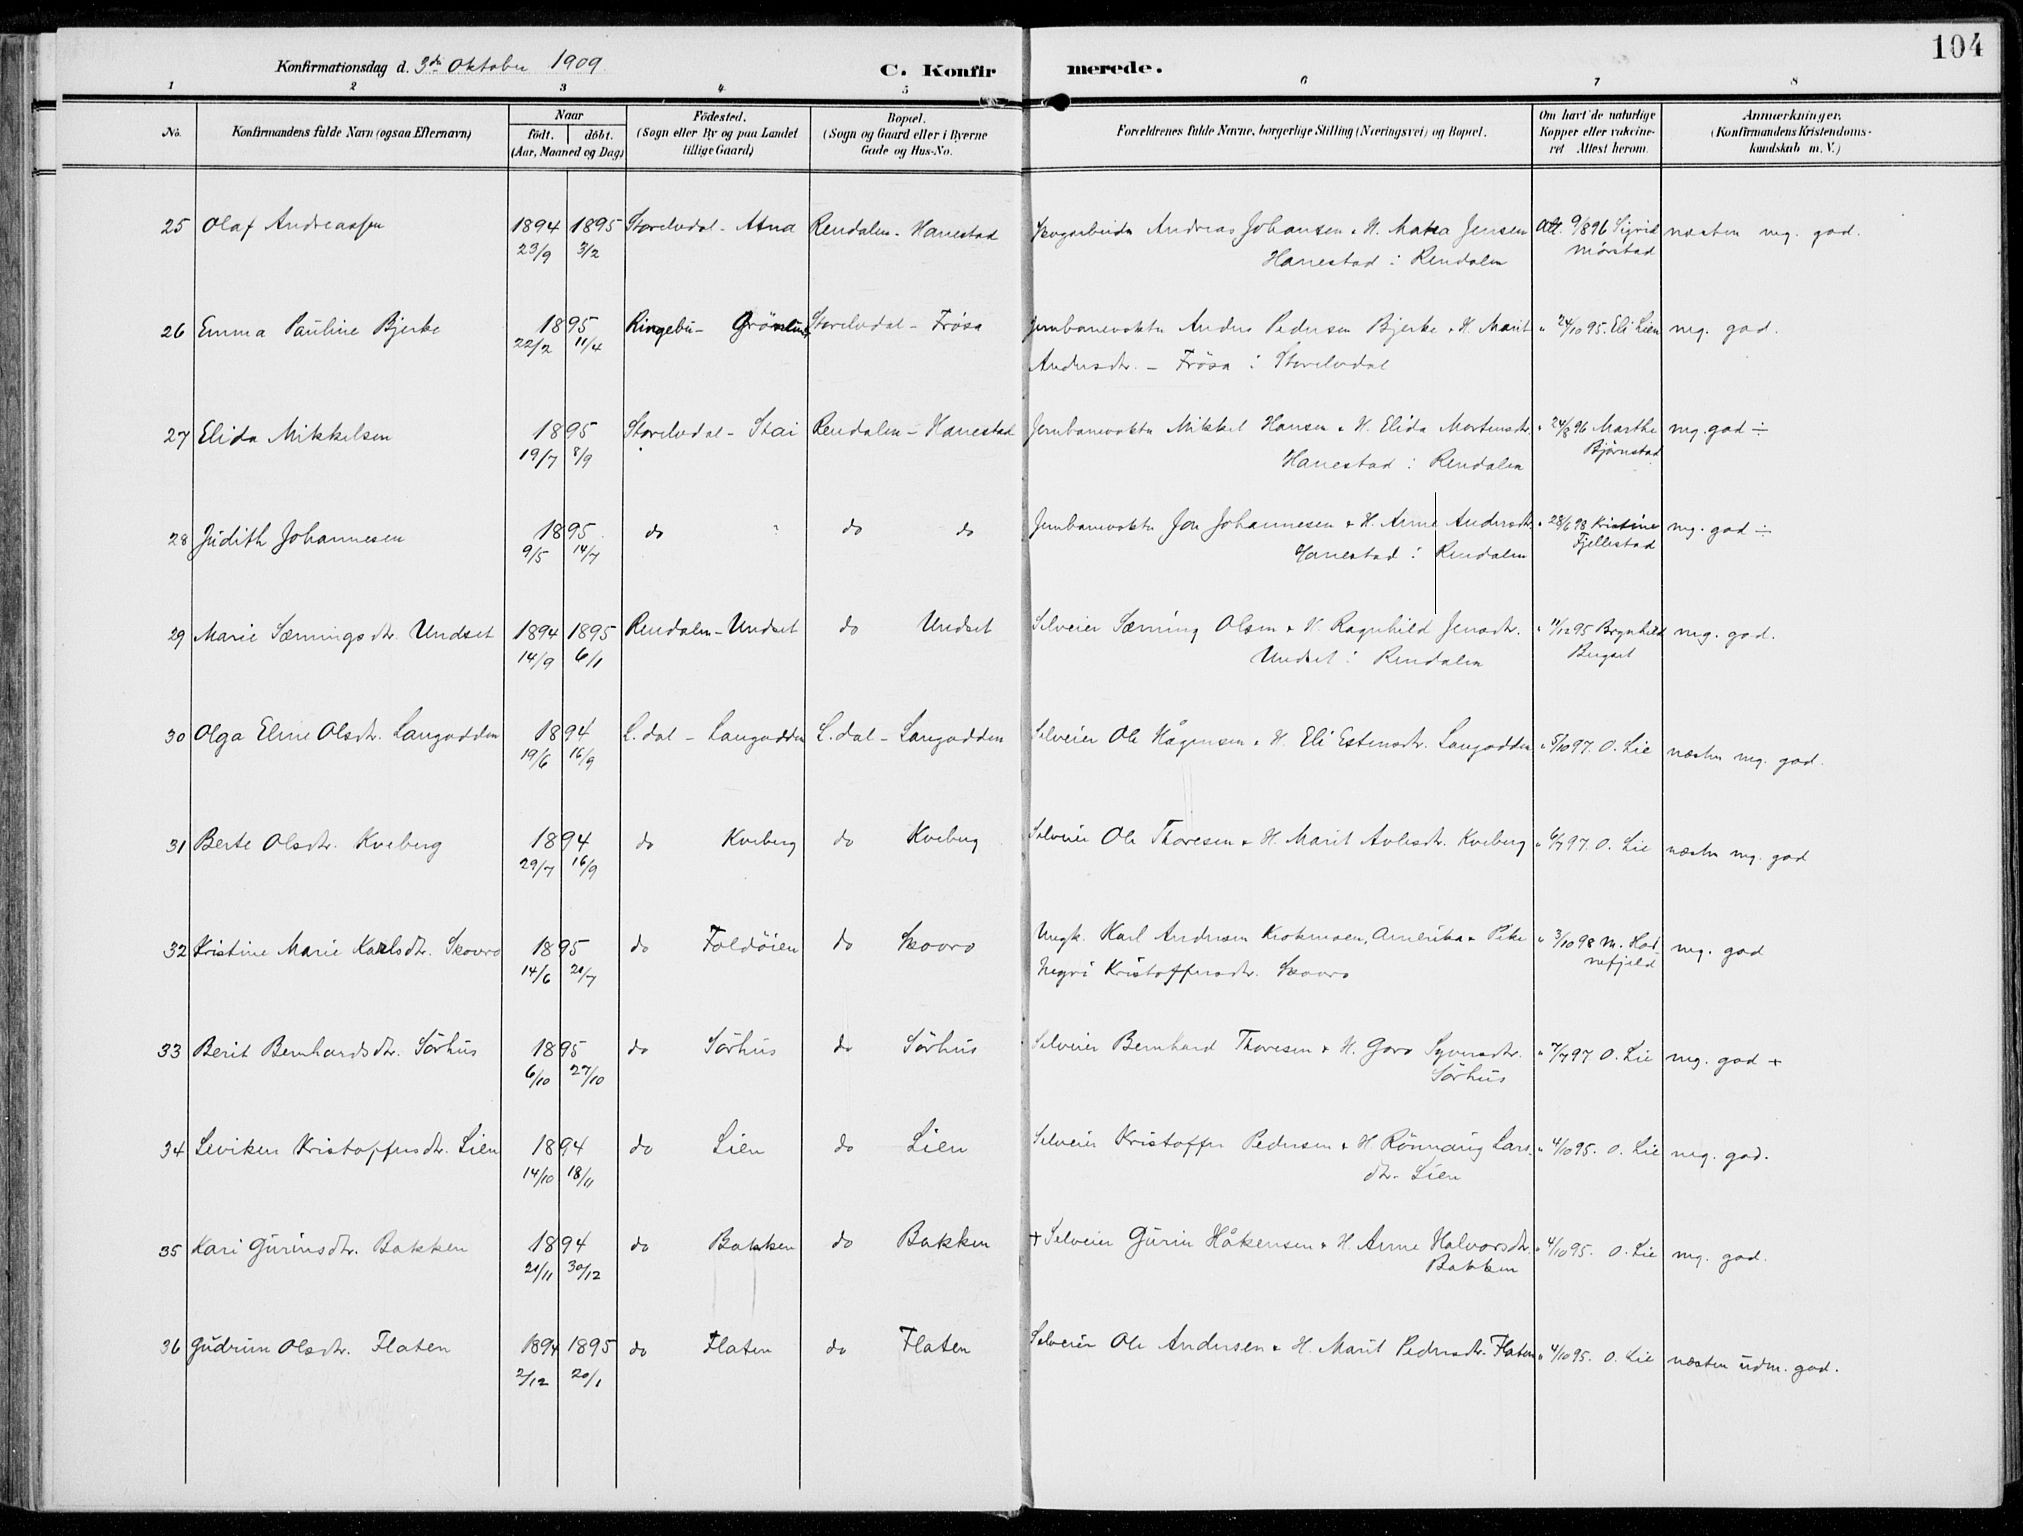 104
Konfirmationsdag d. 3die Oktober 1909. C. Konfirmerede.
1 2 3 4 5 6 7 8
No. Konfirmandens fulde Navn (ogsaa Efternavn) Naar födt. döbt. (Aar, Maaned og Dag) Födested. (Sogn eller By og paa Landet tillige Gaard) Bopæl. (Sogn og Gaard eller i Byerne Gade og Hus-No. Forældrenes fulde Navne, borgerlige Stilling (Næringsvei) og Bopæl. Om havt de naturlige Kopper eller vakcineret Attest herom. Anmærkninger, (Konfirmandens Kristendomskundskab m. V.)
25 Olaf Andreassen 1894 1895 Storelvdal - Atna Rendalen - Hanestad Skogarbeider Andreas Johansen & H. Matea Jensen Att. 9/8 96 Sigrid næsten meg. god.
23/9 3/2 Hanestad i Rendalen Mørstad
26 Emma Pauline Bjerke 1895 Ringebu - Storelvdal - Frøsa Jernbanevokter Anders Pedersen Bjerke & H. Marit " 24/10 95. Eli Lien meg. god.
22/2 11/4 Andersdtr. - Frøsa i Storelvdal
27 Elida Mikkelsen 1895 Storelvdal - Stai Rendalen - Hanestad Jernbanevokter Mikkel Hansen & H. Elida Mortensdtr. " 24/8 96 Marthe meg. god ÷
19/7 8/9 Hanestad i Rendalen Bjørnstad
28 Judith Johannesen 1895 do " do do Jernbanevokter Jon Johannesen & H. Anne Andersdtr. " 28/6 98 Kristine meg. god ÷
9/5 14/7 Hanestad i Rendalen Fjellestad
29 Marie Sæmingsdtr. Undset 1894 1895 Rendalen - Undset do Undset Selveier Sæming Olsen & H. Ragnhild Jensdtr. " 11/12 95 Brynhild meg. god.
14/9 6/1 Undset i Rendalen Bergset
30 Olga Eline Olsdtr. Langodden 1894 L.dal - Langodden L.dal - Langodden Selveier Ole Hågensen & H. Eli Estensdtr. Langodden " 5/10 97. O. Lie næsten meg. god.
19/6 16/9
31 Berte Olsdtr. Kveberg 1894 do Kveberg do Kveberg Selveier Ole Thoresen & H. Marit Avlesdtr. Kveberg " 6/7 97. O. Lie næsten meg. god
29/7 16/9
32 Kristine Marie Karlsdtr. Skovro 1895 do Foldöien do Skovro Ungk. Karl Andersen Krokmoen, Amerika & Pike " 3/10 98 M. meg. god
14/6 21/7 Ingri Kristoffersdtr. Skovro
33 Berit Bernhardsdtr. Sörhus 1895 do Sörhus do Sörhus Selveier Bernhard Thoresen & H. Goro Syversdtr. " 7/7 97 O. Lie meg. god +
6/10 27/10 Sörhus
34 Leviken Kristoffersdtr. Lien 1894 do Lien do Lien Selveier Kristoffer Pedersen & H. Rönnaug Lars- " 4/10 95. O. Lie meg. god.
14/10 18/11 dtr. Lien
35 Kari Gurinsdtr. Bakken 1894 do Bakken do Bakken + Selveier Gurin Håkensen & H. Anne Halvorsdtr. " 4/10 95. O. Lie meg. god.
21/11 30/12 Bakken
36 Gudrun Olsdtr. Flaten 1894 1895 do Flaten do Flaten Selveier Ole Andersen & H. Marit Pedersdtr. Flaten " 4/10 95. O. Lie næsten udm. god.
2/12 20/1